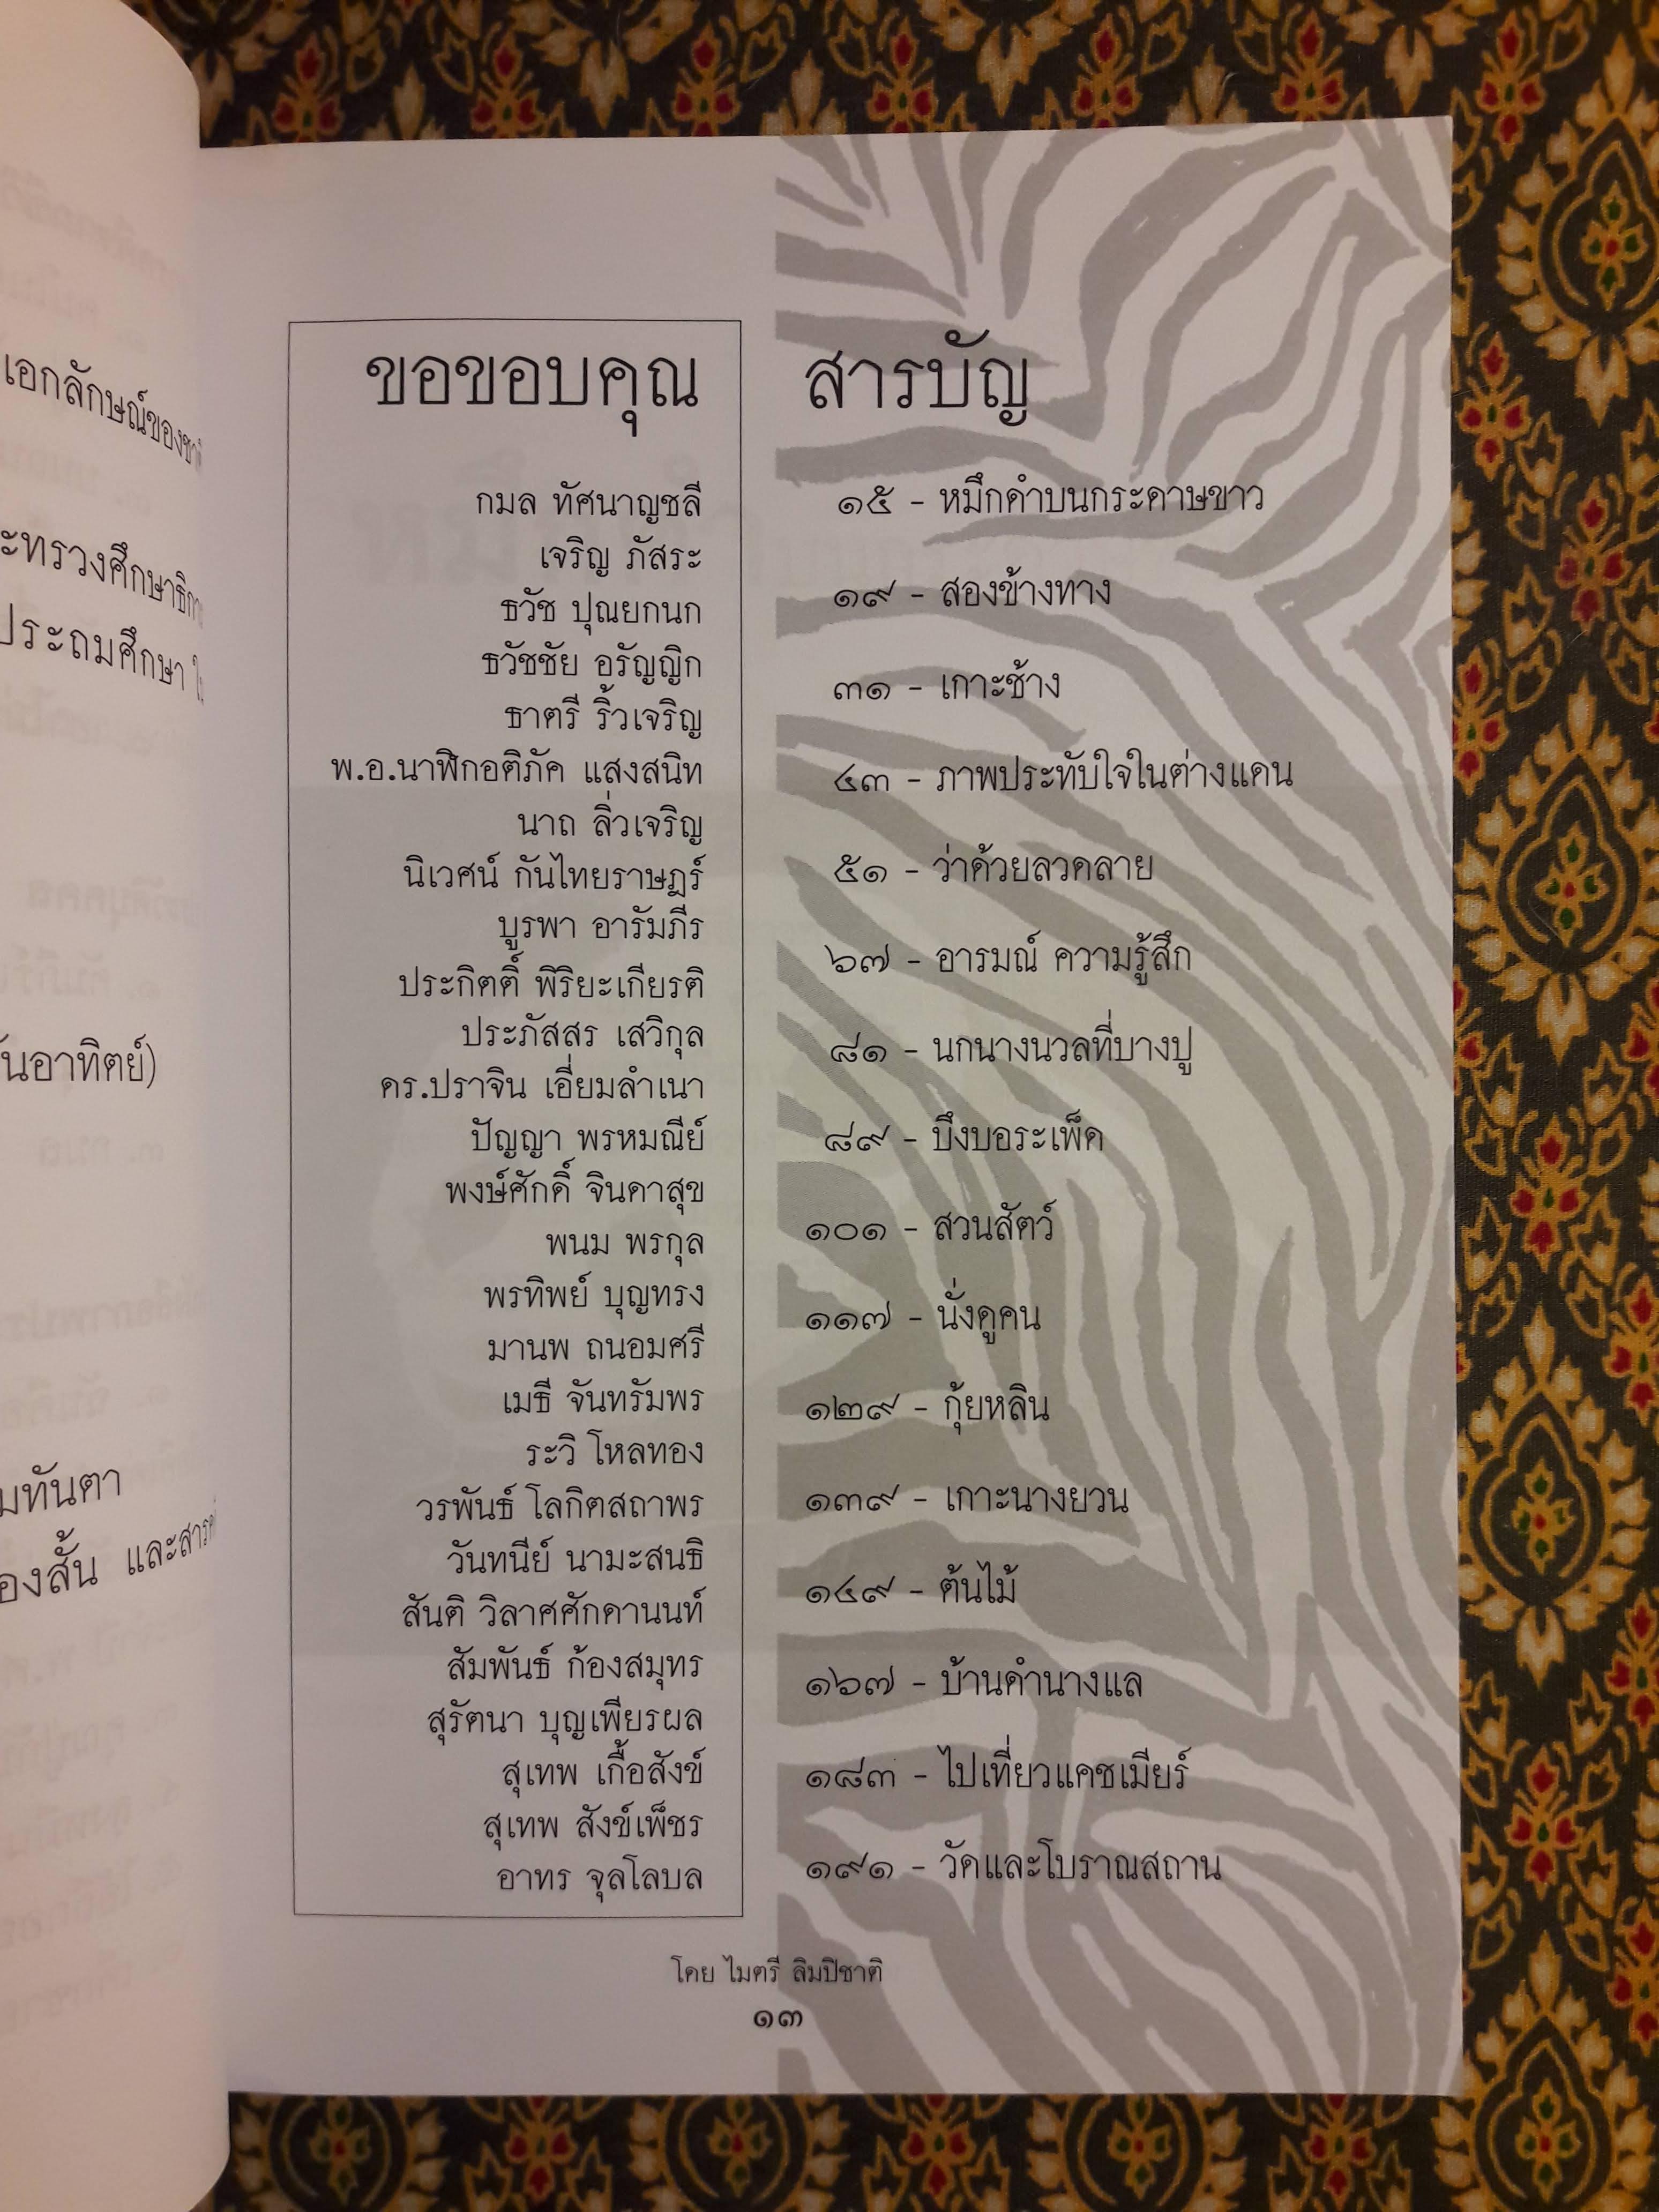 เอกลักษณ์ของชาติ
ะทรวงศึกษาธิการ
ประถมศึกษา
ันอาทิตย์)
มทันตา
องสั้น และสารคดี
ขอขอบคุณ
กมล ทัศนาญชลี
เจริญ ภัสระ
ธวัช ปุณยกนก
ธวัชชัย อรัญญิก
ธาตรี ริ้วเจริญ
พ.อ.นาฬิกอติภัค แสงสนิท
นาถ ลิ่วเจริญ
นิเวศน์ กันไทยราษฎร์
บูรพา อารัมภีร
ประกิตติ์ พิริยะเกียรติ
ประภัสสร เสวิกุล
ดร.ปราจิน เอี่ยมลำเนา
ปัญญา พรหมณีย์
พงษ์ศักดิ์ จินดาสุข
พนม พรกุล
พรทิพย์ บุญทรง
มานพ ถนอมศรี
เมธี จันทรัมพร
ระวิ โหลทอง
วรพันธ์ โลกิตสถาพร
วันทนีย์ นามะสนธิ
สันติ วิลาศศักดานนท์
สัมพันธ์ ก้องสมุทร
สุรัตนา บุญเพียรผล
สุเทพ เกื้อสังข์
สุเทพ สังข์เพ็ชร
อาทร จุลโลบล
สารบัญ
๑๕ - หมึกดำบนกระดาษขาว
๑๙ - สองข้างทาง
๓๑ - เกาะช้าง
๔๓ - ภาพประทับใจในต่างแดน
๕๑ - ว่าด้วยลวดลาย
๖๗ - อารมณ์ ความรู้สึก
๘๑ - นกนางนวลที่บางปู
๘๙ - บึงบอระเพ็ด
๑๐๑ - สวนสัตว์
๑๑๗ - นั่งดูคน
๑๒๙ - กุ้ยหลิน
๑๓๙ - เกาะนางยวน
๑๔๙ - ต้นไม้
๑๖๗ - บ้านดำนางแล
๑๘๓ - ไปเที่ยวแคชเมียร์
๑๙๑ - วัดและโบราณสถาน
โดย ไมตรี ลิมปิชาติ
๑๓